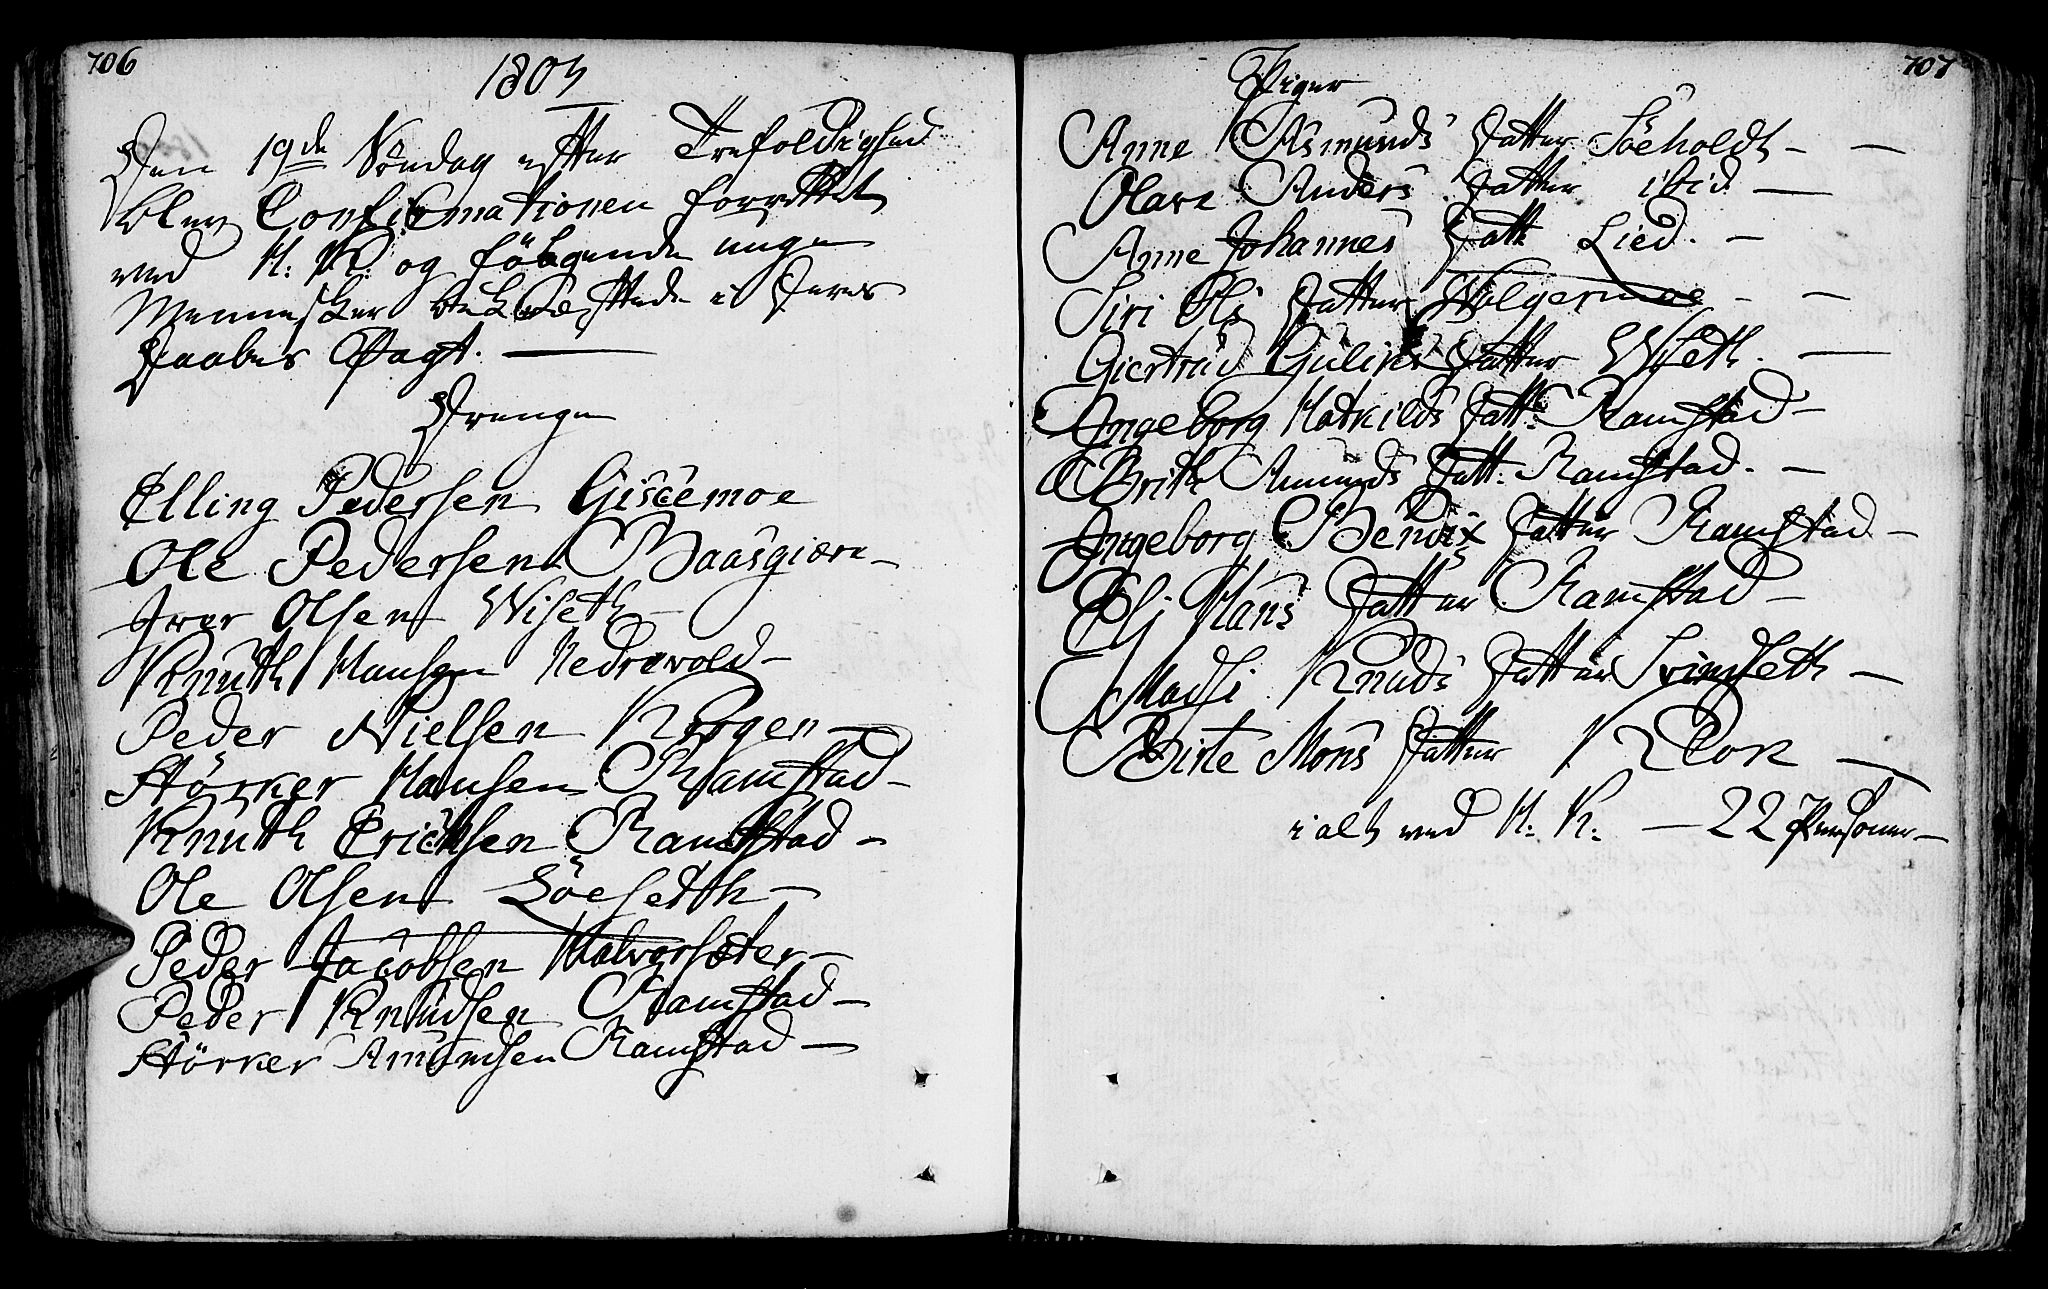 706
180
Den 19de Söndag efter Trefoldighed
blev Confirmationen forrettet
ved H: K: og fölgende unge
Mennesker bekræftede i Deres
Daabes Pagt. —
Drenge
Elling Pedersen Giscemoe
Ole Pedersen Baasgiære —
Iver Olsen Wiseth —
Knuth Hansen Nedrevold —
Peder Nielsen Krogen —
Störker Hansen Ramstad —
Knuth Ericksen Ramstad —
Ole Olsen Löeseth —
Peder Jacobsen Halvorsæter —
Peder Knudsen Ramstad —
Störker Amunsen Ramstad —
707
Piger
Anne Asmunds Datter Söeholdt — —
Olave Anders Datter ibid —
Anne Johannes Datt Lied. —
Siri Ols Datter Holgermoe — —
Giertrud Datter Wiseth. —
Ingeborg Mathilds Datt: Ramstad —
Brith Amunds Datt: Ramstad. —
Ingeborg Bendix Datter Ramstad —
Eli Hans Datter Ramstad —
Madsi Knuds Datter Svindseth —
Birte Mons Datter Klok —
i alt ved H: K: — 22 Personer —